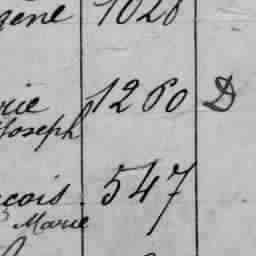 gene 1028
rie 1260 D
Joseph
çois 547
Marie